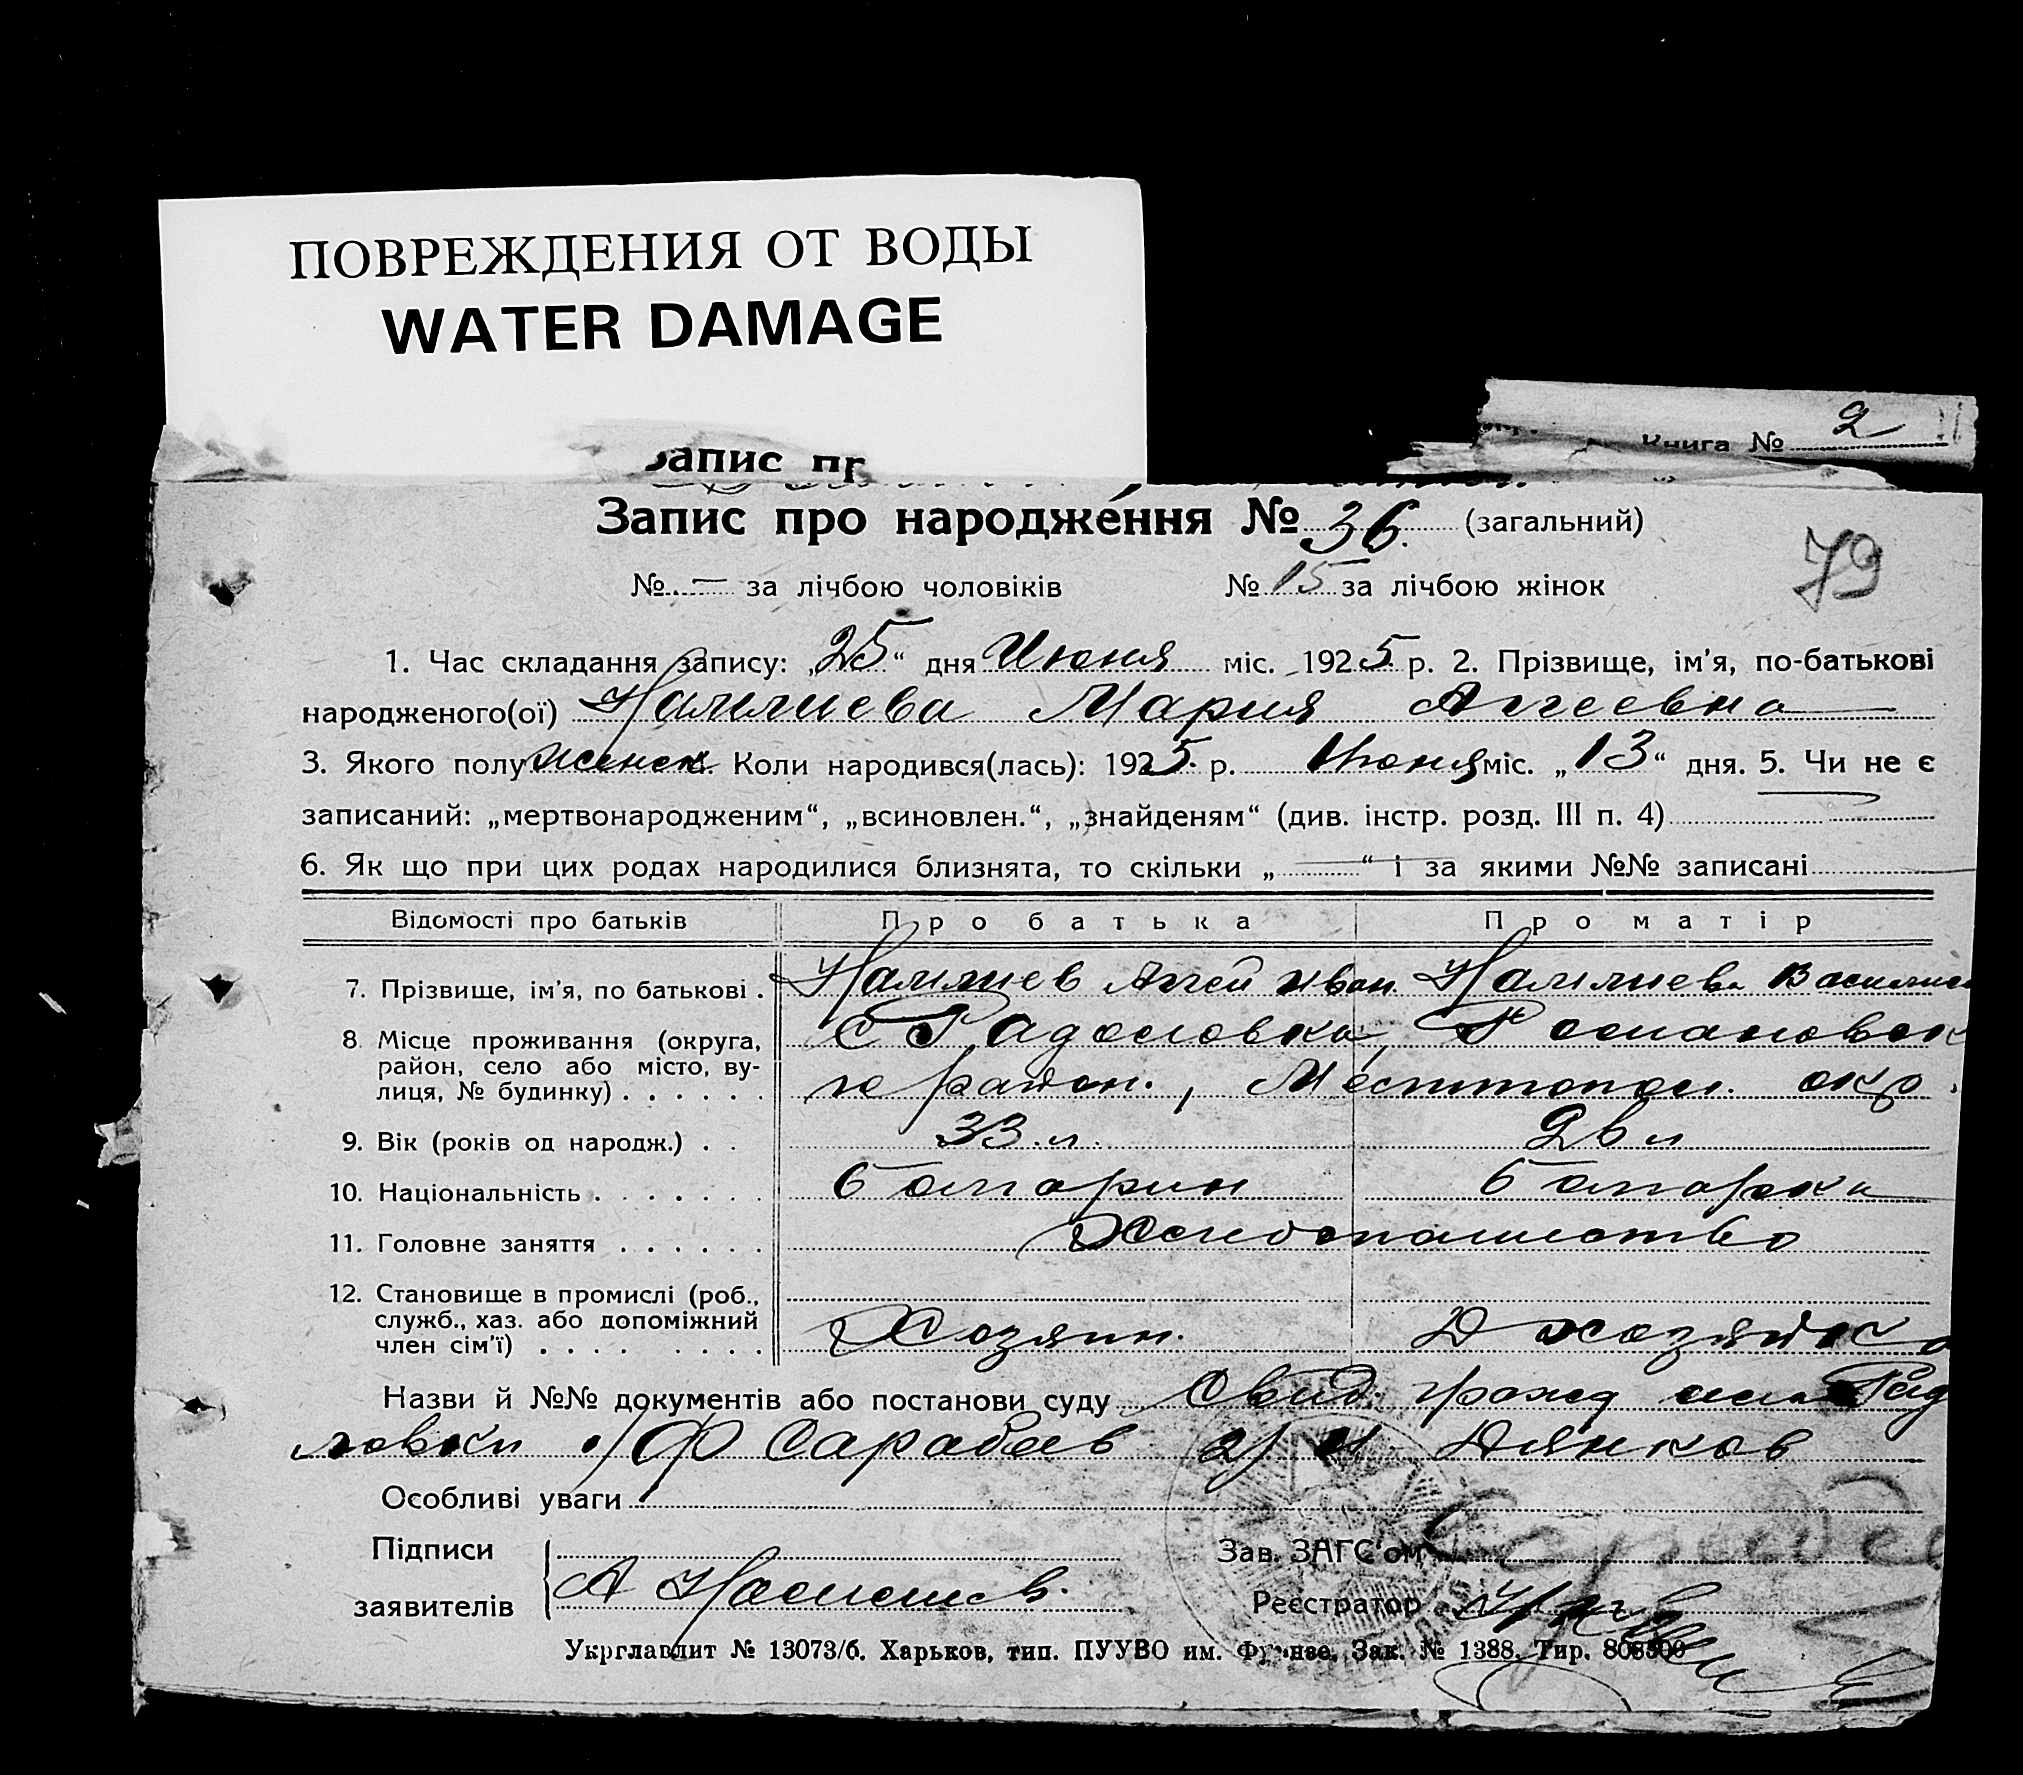 ПОВРЕЖДЕНИЯ ОТ ВОДЫ
WATER DAMAGE
Книга № 2
запис пр
Запис про народже́ння № 36. (загальний)
79
№ — за лічбою чоловіків № 15 за лічбою жінок
1. Час складання запису: „25“ дня Июня міс. 1925 р. 2. Прізвище, ім'я, по-батькові
народженого(ої) Мария Агеевна
3. Якого полу женск. Коли народився(лась): 1925 р. Июня міс. „13“ дня. 5. Чи не є
записаний: „мертвонародженим“, „всиновлен.“, „знайденям“ (див. інстр. розд. III п. 4)
6. Як що при цих родах народилися близнята, то скільки „—“ і за якими №№ записані
Відомості про батьків Про батька Про матір
7. Прізвище, ім'я, по батькові . Агей Иван.
8. Місце проживання (округа, С Радоловка, Романовск
район, село або місто, ву- го район., Мелитопол. окр.
лиця, № будинку) . . . . . .
9. Вік (років од народж.) . . 33 л. 26 л
10. Національність . . . . . . . болгарин болгарка
11. Головне заняття . . . . . . Хлебопашество
12. Становище в промислі (роб.,
служб., хаз. або допоміжний Хозяин. Д хозяйка
член сім'ї) . . . . . . . .
Назви й №№ документів або постанови суду Свид. рожд
ловки Ф Сарабаев
Особливі уваги
Підписи Зав. ЗАГС'ом
заявителів А Реєстратор
Укрглавлит № 13073/б. Харьков, тип. ПУУВО им. Фрунзе. Зак. № 1388. Тир. 808500